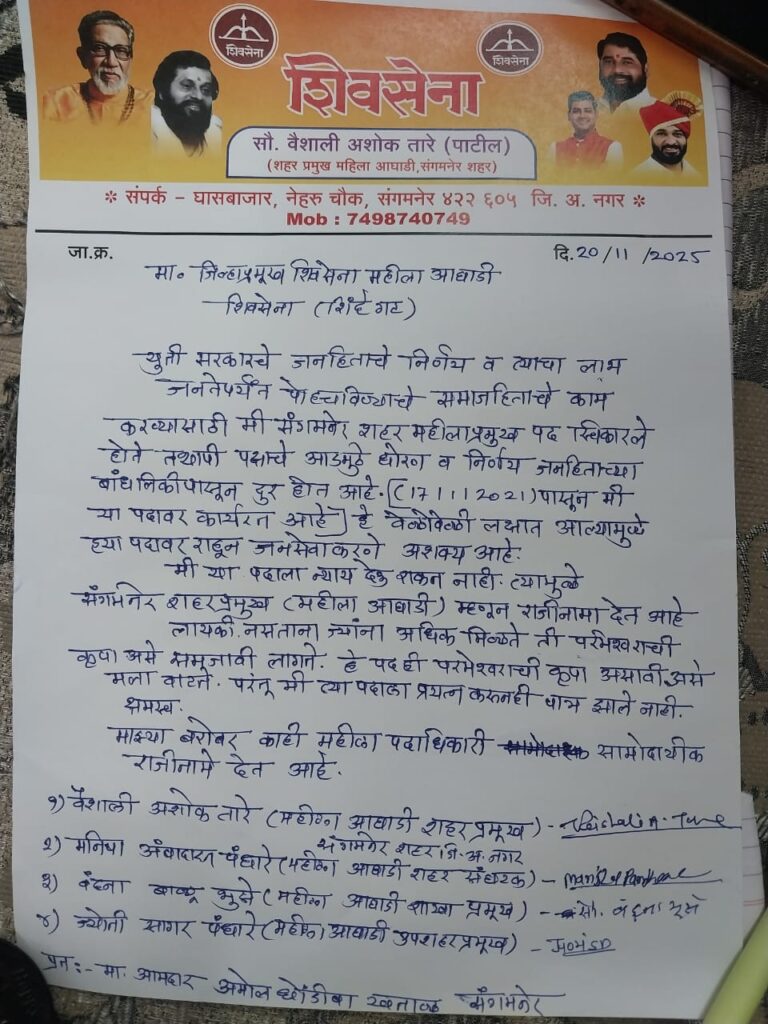 शिवसेना
शिवसेना
शिवसेना
सौ. वैशाली अशोक तारे (पाटील)
(शहर प्रमुख महिला आघाडी,संगमनेर शहर)
* संपर्क – घासबाजार, नेहरु चौक, संगमनेर ४२२ ६०५ जि. अ. नगर *
Mob : 7498740749
जा.क्र. दि. 20/11/2025
मा. जिल्हाप्रमुख शिवसेना महीला आघाडी
शिवसेना (शिंदे गट)
युती सरकारचे जनहिताचे निर्णय व त्याचा लाभ
जनतेपर्यंत पोहचविण्याचे समाजहिताचे काम
करण्यासाठी मी संगमनेर शहर महीलाप्रमुख पद स्विकारले
होते तथापी पक्षाचे आडमुठे धोरण व निर्णय जनहिताच्या
बांधनिकीपासून दुर होत आहे. (171112021) पासून मी
या पदावर कार्यरत आहे) हे वेळोवेळी लक्षात आल्यामुळे
ह्या पदावर राहून जनसेवा करणे अशक्य आहे.
मी या पदाला न्याय देऊ शकत नाही. त्यामुळे
संगमनेर शहरप्रमुख (महीला आघाडी) म्हणून राजीनामा देत आहे
लायकी नसताना ज्यांना अधिक मिळते ती परमेश्वराची
कृपा असे समजावी लागते. हे पद ही परमेश्वराची कृपा असावी असे
मला वाटते. परंतू मी त्या पदाला प्रयत्न करूनही पात्र झाले नाही.
क्षमस्व.
माझ्या बरोबर काही महीला पदाधिकारी सामोदायीक
राजीनामे देत आहे.
१) वैशाली अशोक तारे (महीला आघाडी शहर प्रमुख) - Vaishali A. Tare
संगमनेर शहर जि. अ. नगर
२) मनिषा अंबादास पंधारे (महीला आघाडी शहर संघटक) -
३) वंदना बाळू भुसे (महीला आघाडी शाखा प्रमुख) - सौ. वंदना भुसे
४) ज्योती सागर पंधारे (महीला आघाडी उपशहरप्रमुख) -
प्रत :- मा. आमदार अमोल धोंडीबा खताळ संगमनेर